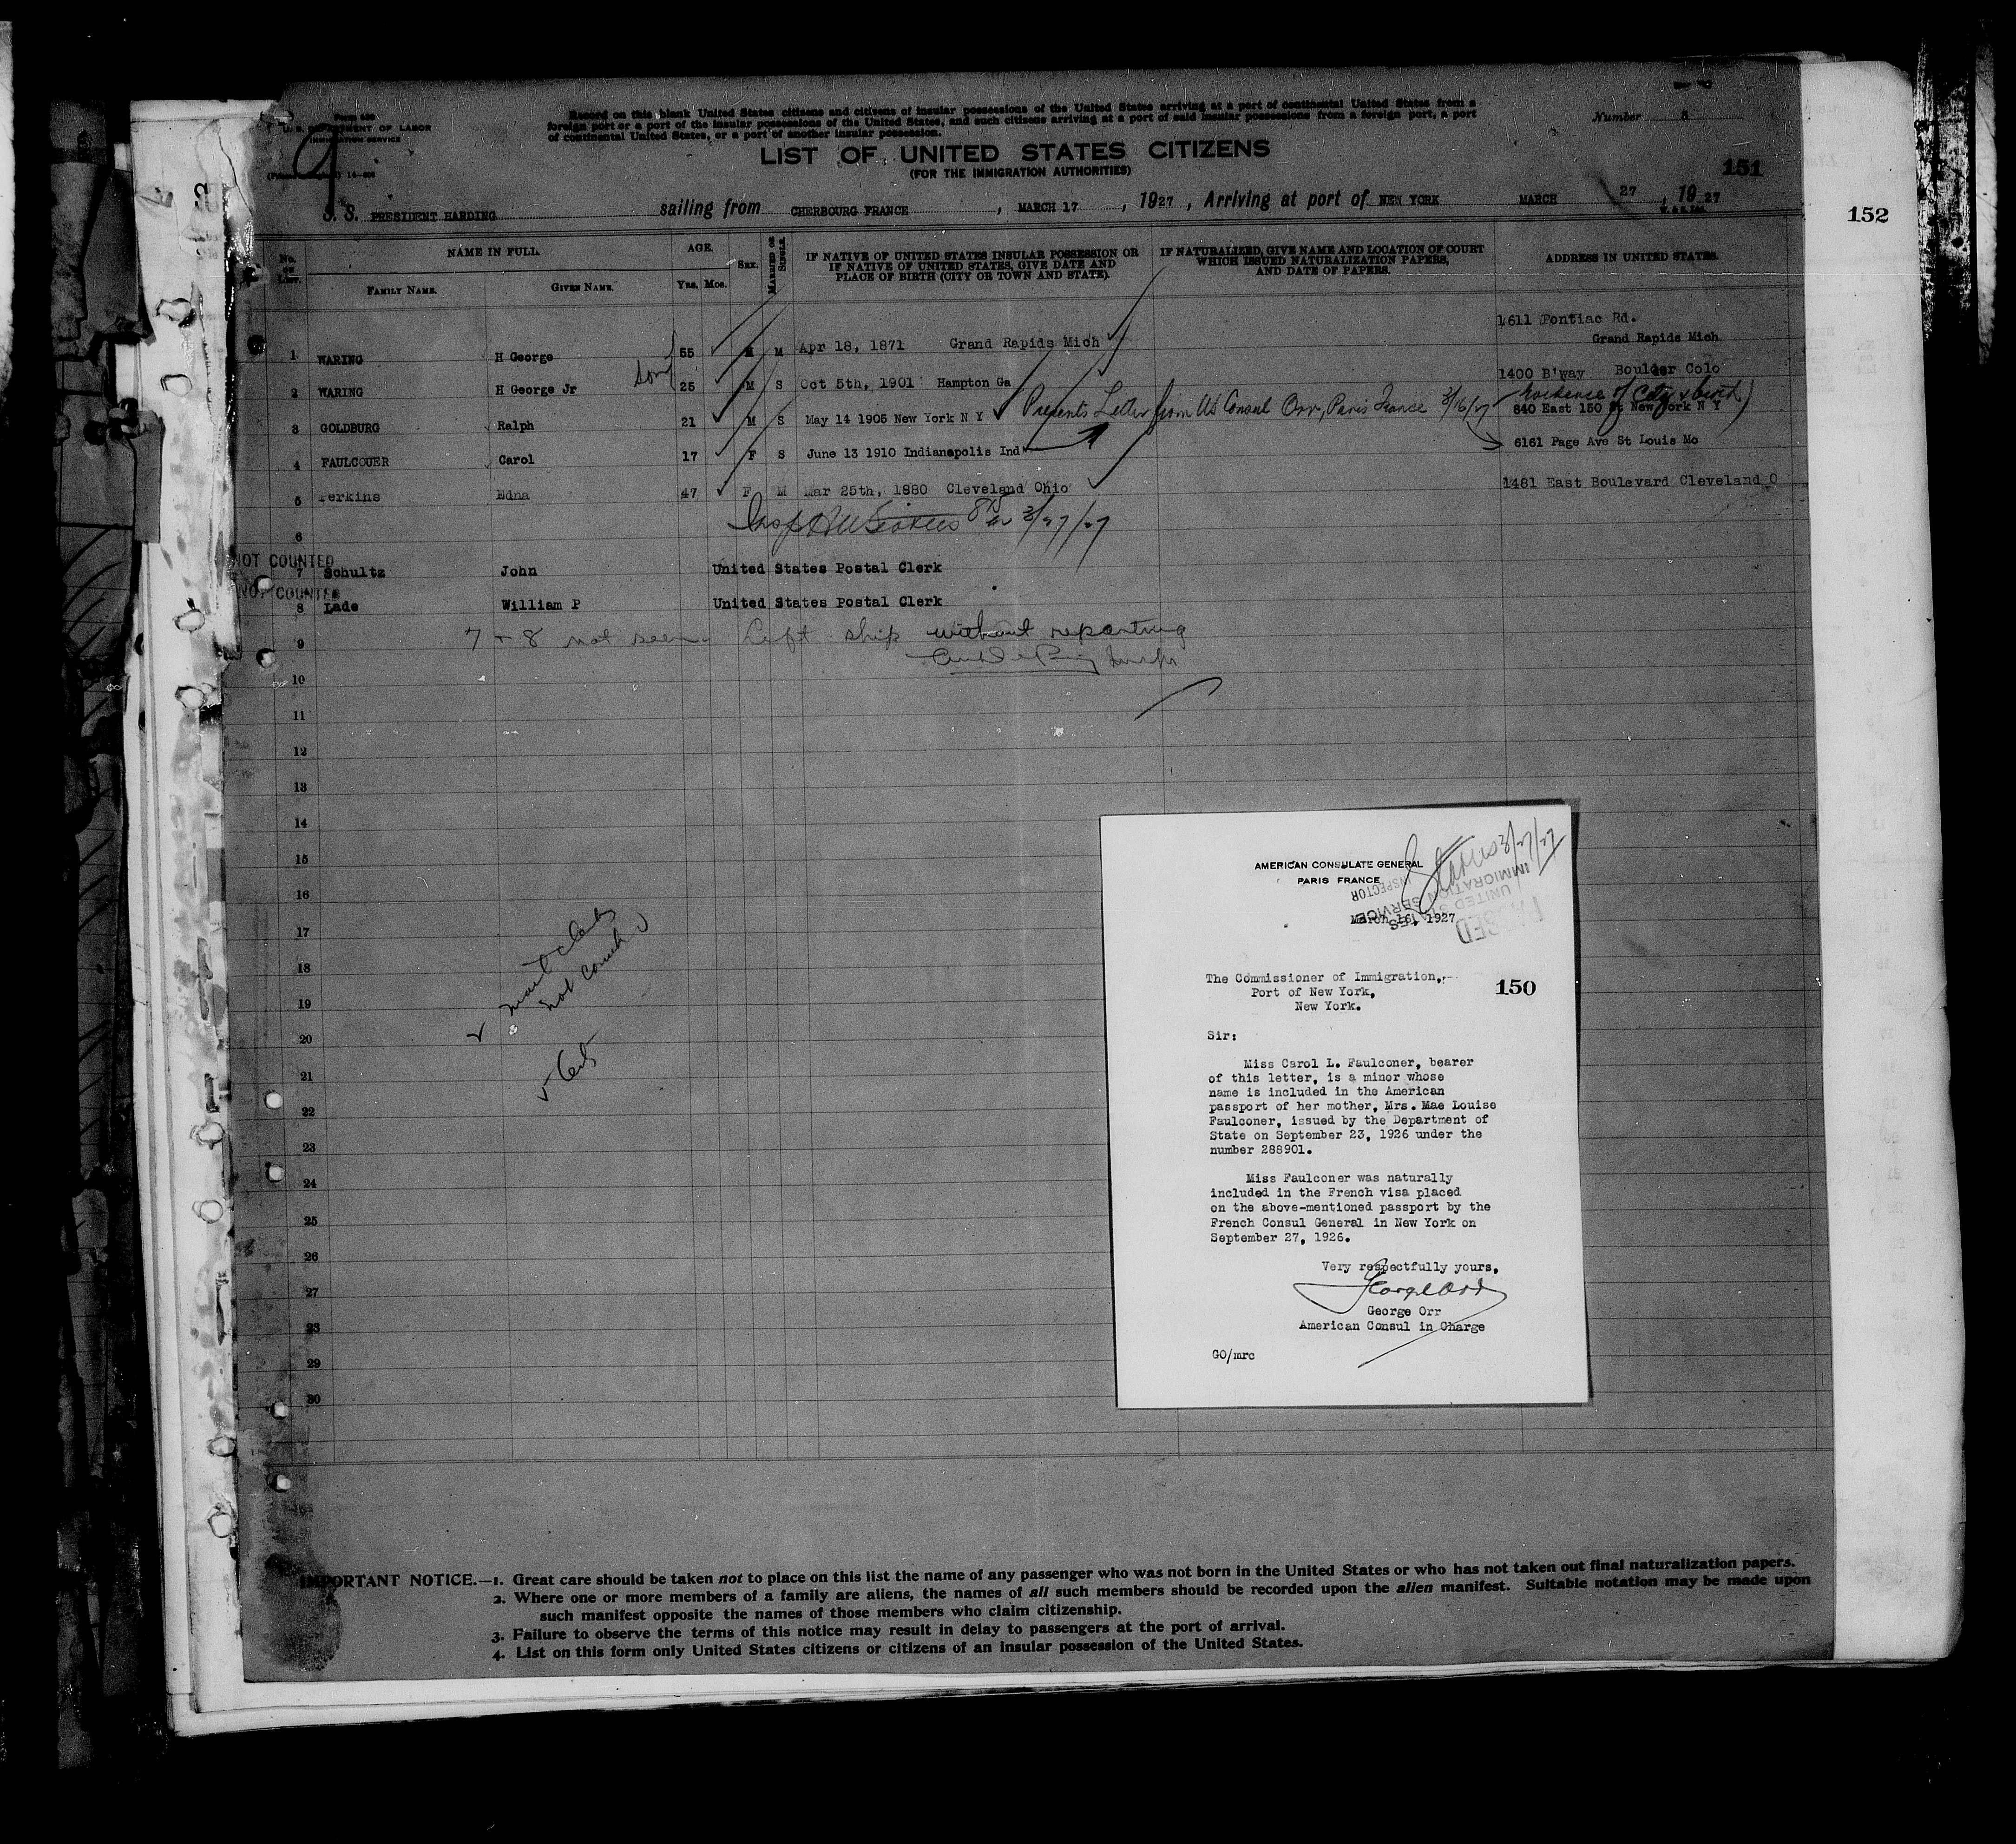 Form 630
U. S. DEPARTMENT OF LABOR
IMMIGRATION SERVICE
Record on this blank United States citizens and citizens of insular possessions of the United States arriving at a port of continental United States from a
foreign port or a port of the insular possessions of the United States, and such citizens arriving at a port of said insular possessions from a foreign port, a port
of continental United States, or a port of another insular possession.
Number 3
LIST OF UNITED STATES CITIZENS
(FOR THE IMMIGRATION AUTHORITIES)
151
152
S. S. PRESIDENT HARDING sailing from CHERBOURG FRANCE, MARCH 17, 1927, Arriving at port of NEW YORK MARCH 27, 1927
No. on List.
NAME IN FULL.
FAMILY NAME.
GIVEN NAME.
AGE.
Yrs. Mos.
SEX.
MARRIED OR SINGLE.
IF NATIVE OF UNITED STATES INSULAR POSSESSION OR
IF NATIVE OF UNITED STATES, GIVE DATE AND
PLACE OF BIRTH (CITY OR TOWN AND STATE).
IF NATURALIZED, GIVE NAME AND LOCATION OF COURT
WHICH ISSUED NATURALIZATION PAPERS,
AND DATE OF PAPERS.
ADDRESS IN UNITED STATES.
1 WARING H George 55 M M Apr 18, 1871 Grand Rapids Mich 1611 Pontiac Rd.
Grand Rapids Mich
2 WARING H George Jr son 25 M S Oct 5th, 1901 Hampton Ga 1400 B'way Boulder Colo
Presents Letter from US Consul Orr, Paris France 3/16/27 - evidence of City & birth)
3 GOLDBURG Ralph 21 M S May 14 1905 New York N Y 840 East 150 St New York N Y
4 FAULCOUER Carol 17 F S June 13 1910 Indianapolis Ind 6161 Page Ave St Louis Mo
5 Perkins Edna 47 F M Mar 25th, 1880 Cleveland Ohio 1481 East Boulevard Cleveland O
6 3/27/27
NOT COUNTED
7 Schultz John United States Postal Clerk
NOT COUNTED
8 Lade William P United States Postal Clerk
9 7 + 8 not seen. Left ship without reporting
10
11
12
13
14
15
16
17
18
19
20
21
22
23
24
25
26
27
28
29
30
not count
AMERICAN CONSULATE GENERAL
PARIS FRANCE
March 16, 1927
3/27/27
PASSED
UNITED STATES
IMMIGRATION SERVICE
INSPECTOR
The Commissioner of Immigration,
Port of New York,
New York.
150
Sir:
Miss Carol L. Faulconer, bearer
of this letter, is a minor whose
name is included in the American
passport of her mother, Mrs. Mae Louise
Faulconer, issued by the Department of
State on September 23, 1926 under the
number 288901.
Miss Faulconer was naturally
included in the French visa placed
on the above-mentioned passport by the
French Consul General in New York on
September 27, 1926.
Very respectfully yours,
George Orr
George Orr
American Consul in Charge
GO/mrc
IMPORTANT NOTICE.—1. Great care should be taken not to place on this list the name of any passenger who was not born in the United States or who has not taken out final naturalization papers.
2. Where one or more members of a family are aliens, the names of all such members should be recorded upon the alien manifest. Suitable notation may be made upon
such manifest opposite the names of those members who claim citizenship.
3. Failure to observe the terms of this notice may result in delay to passengers at the port of arrival.
4. List on this form only United States citizens or citizens of an insular possession of the United States.